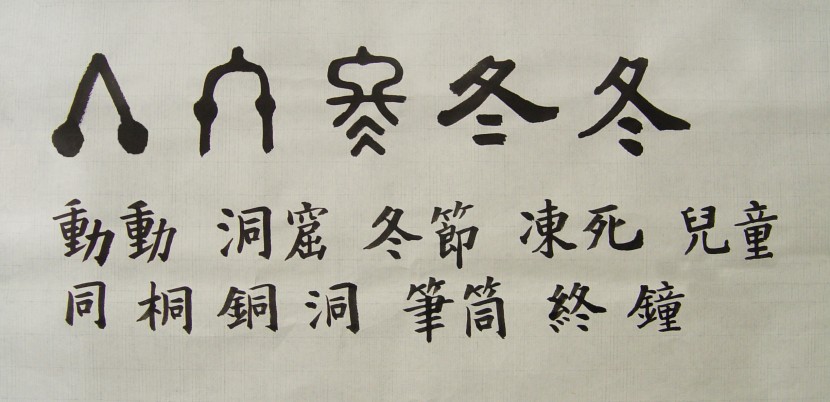 冬 冬 冬 冬 冬
動動 洞窟 冬節 凍死 兒童
同 桐 銅 洞 筆筒 終 鐘